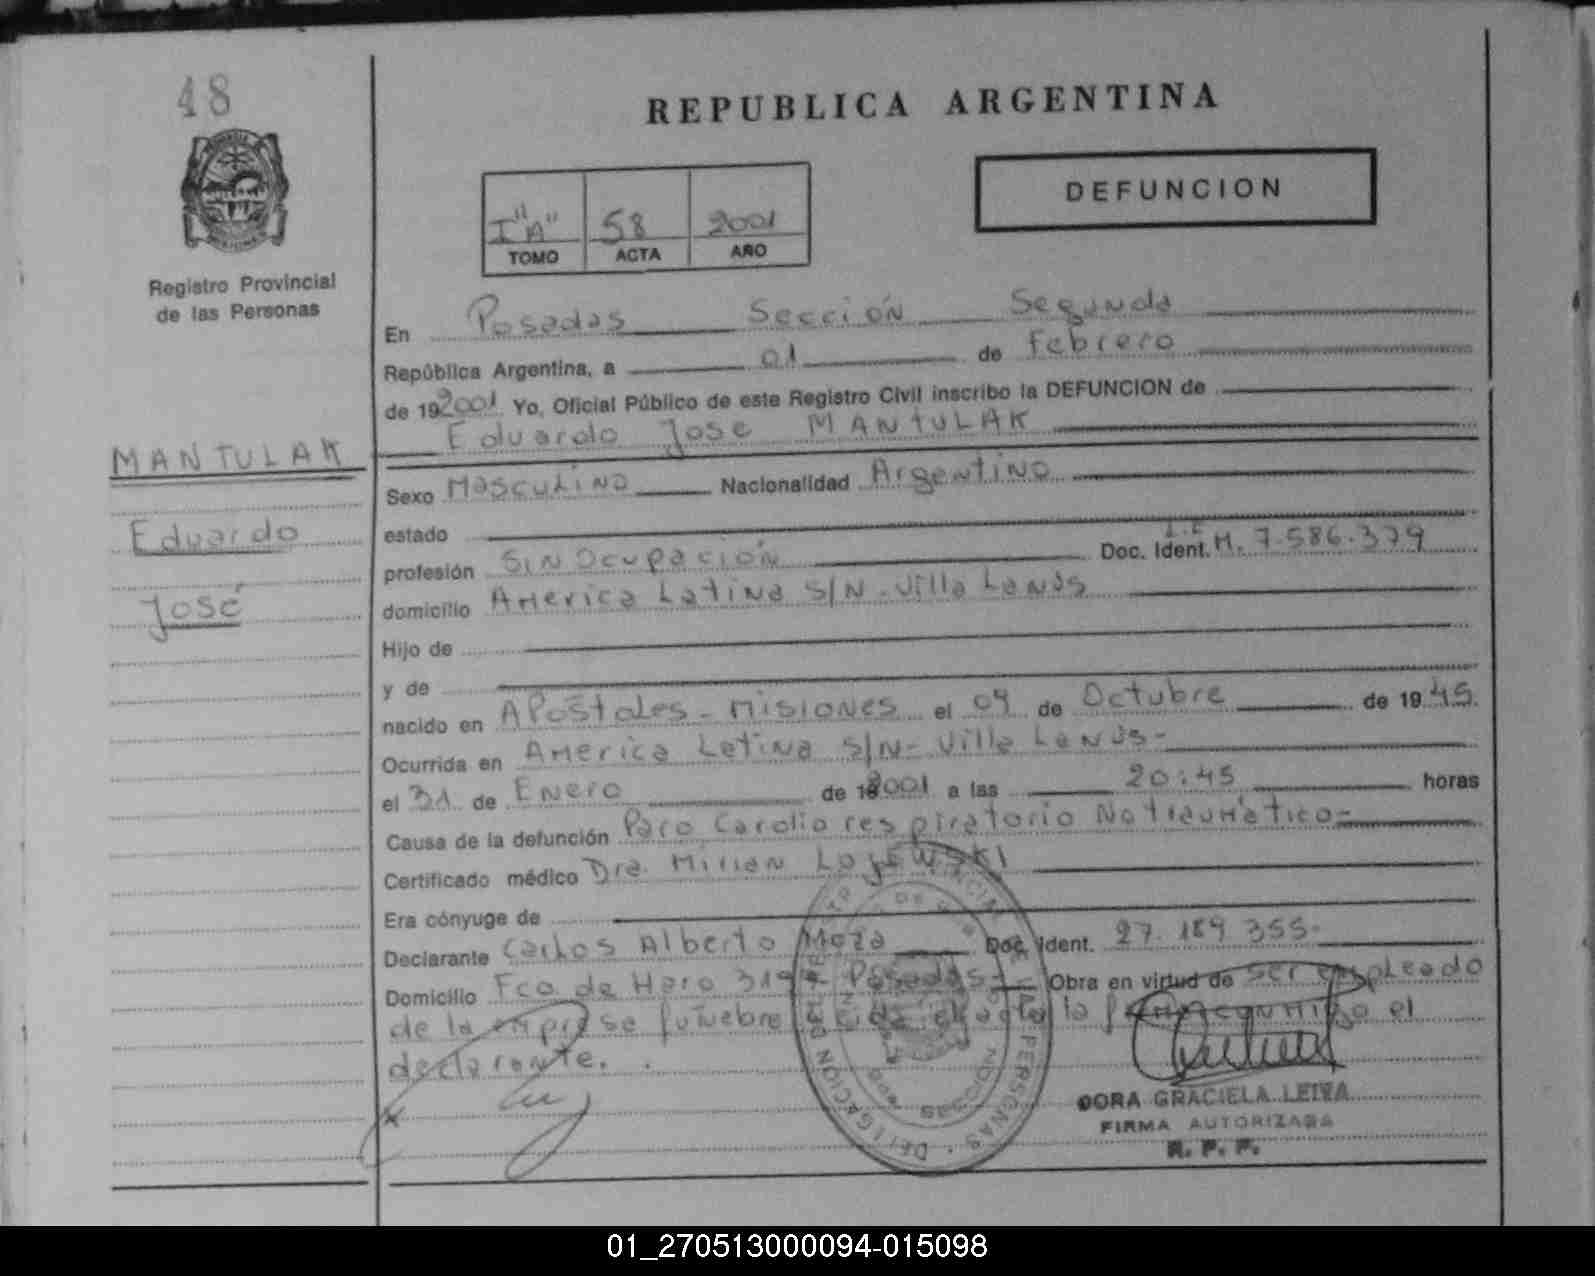 48
REPUBLICA ARGENTINA
DEFUNCION
I "A" 58 2001
TOMO ACTA AÑO
Registro Provincial
de las Personas
MANTULAK
Eduardo
José
En Posadas Sección Segunda
República Argentina, a 01 de Febrero
de 192001 Yo, Oficial Público de este Registro Civil inscribo la DEFUNCION de
Eduardo Jose MANTULAK
Sexo Masculino Nacionalidad Argentino
estado
profesión Sin Ocupación Doc. Ident. L.E M. 7.586.379
domicilio America Latina S/N - Villa Lanús
Hijo de
y de
nacido en Apostoles - Misiones el 04 de Octubre de 1945.
Ocurrida en America Latina S/N - Villa Lanús -
el 31 de Enero de 2001 a las 20:45 horas
Causa de la defunción Paro Cardio respiratorio No traumático -
Certificado médico Dra. Mirian Lojewski
Era cónyuge de
Declarante Carlos Alberto Moza Doc. Ident. 27.189.355-
Domicilio Fco. de Haro Posadas - Obra en virtud de ser empleado
de la empresa funebre Leida el acta la firma conmigo el
declarante.
DORA GRACIELA LEIVA
FIRMA AUTORIZADA
R. P. P.
01_270513000094-015098